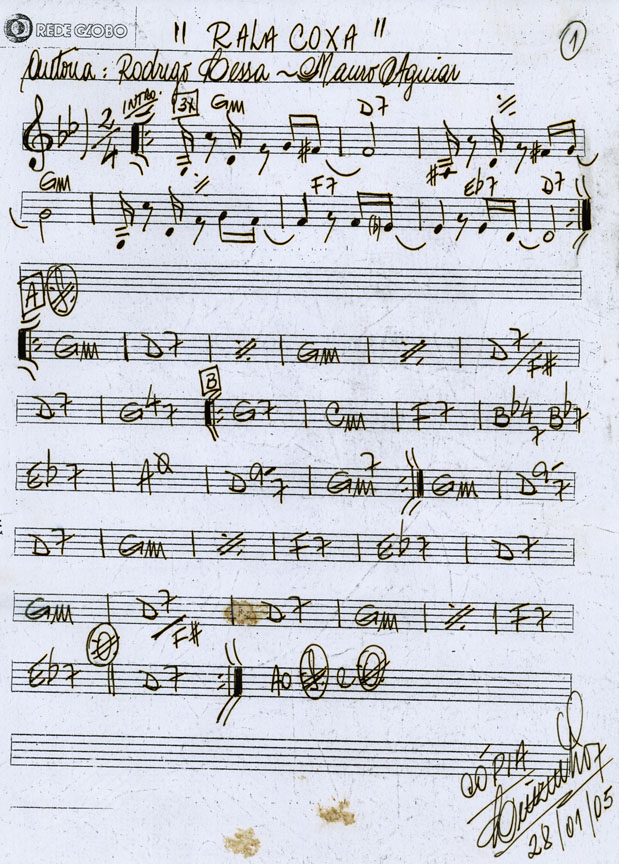 REDE GLOBO
" RALA COXA " 1
Autoria: Rodrigo Lessa ~ Mauro Aguiar
INTRO. 3X Gm D7
2/4
Gm F7 Eb7 D7
A
Gm D7 Gm D7/F#
D7 G47 B G7 Cm F7 Bb47 Bb7
Eb7 Aø D9-7 Gm7 Gm D9-7
D7 Gm F7 Eb7 D7
Gm D7/F# D7 Gm F7
Eb7 D7 AO e
CÓPIA
28/01/05